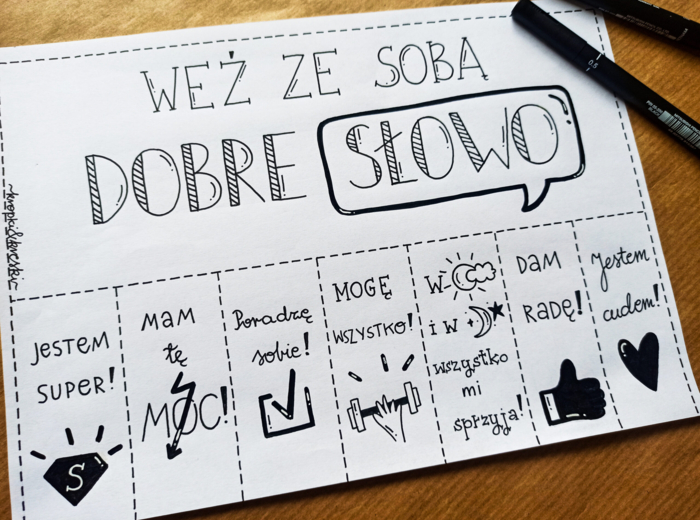 WEŹ ZE SOBĄ
DOBRE SŁOWO
JESTEM
SUPER!
S
MAM
tę
MOC!
Poradzę
sobie!
MOGĘ
WSZYSTKO!
W
i w
wszystko
mi
sprzyja!
DAM
RADĘ!
Jestem
cudem!
0.5